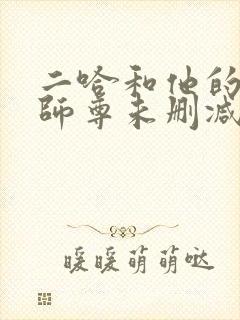 二哈和他的
師尊未删减
暖暖萌萌哒